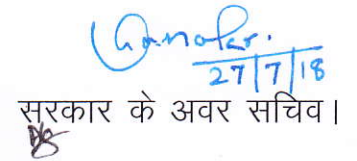 27/7/18
सरकार के अवर सचिव।